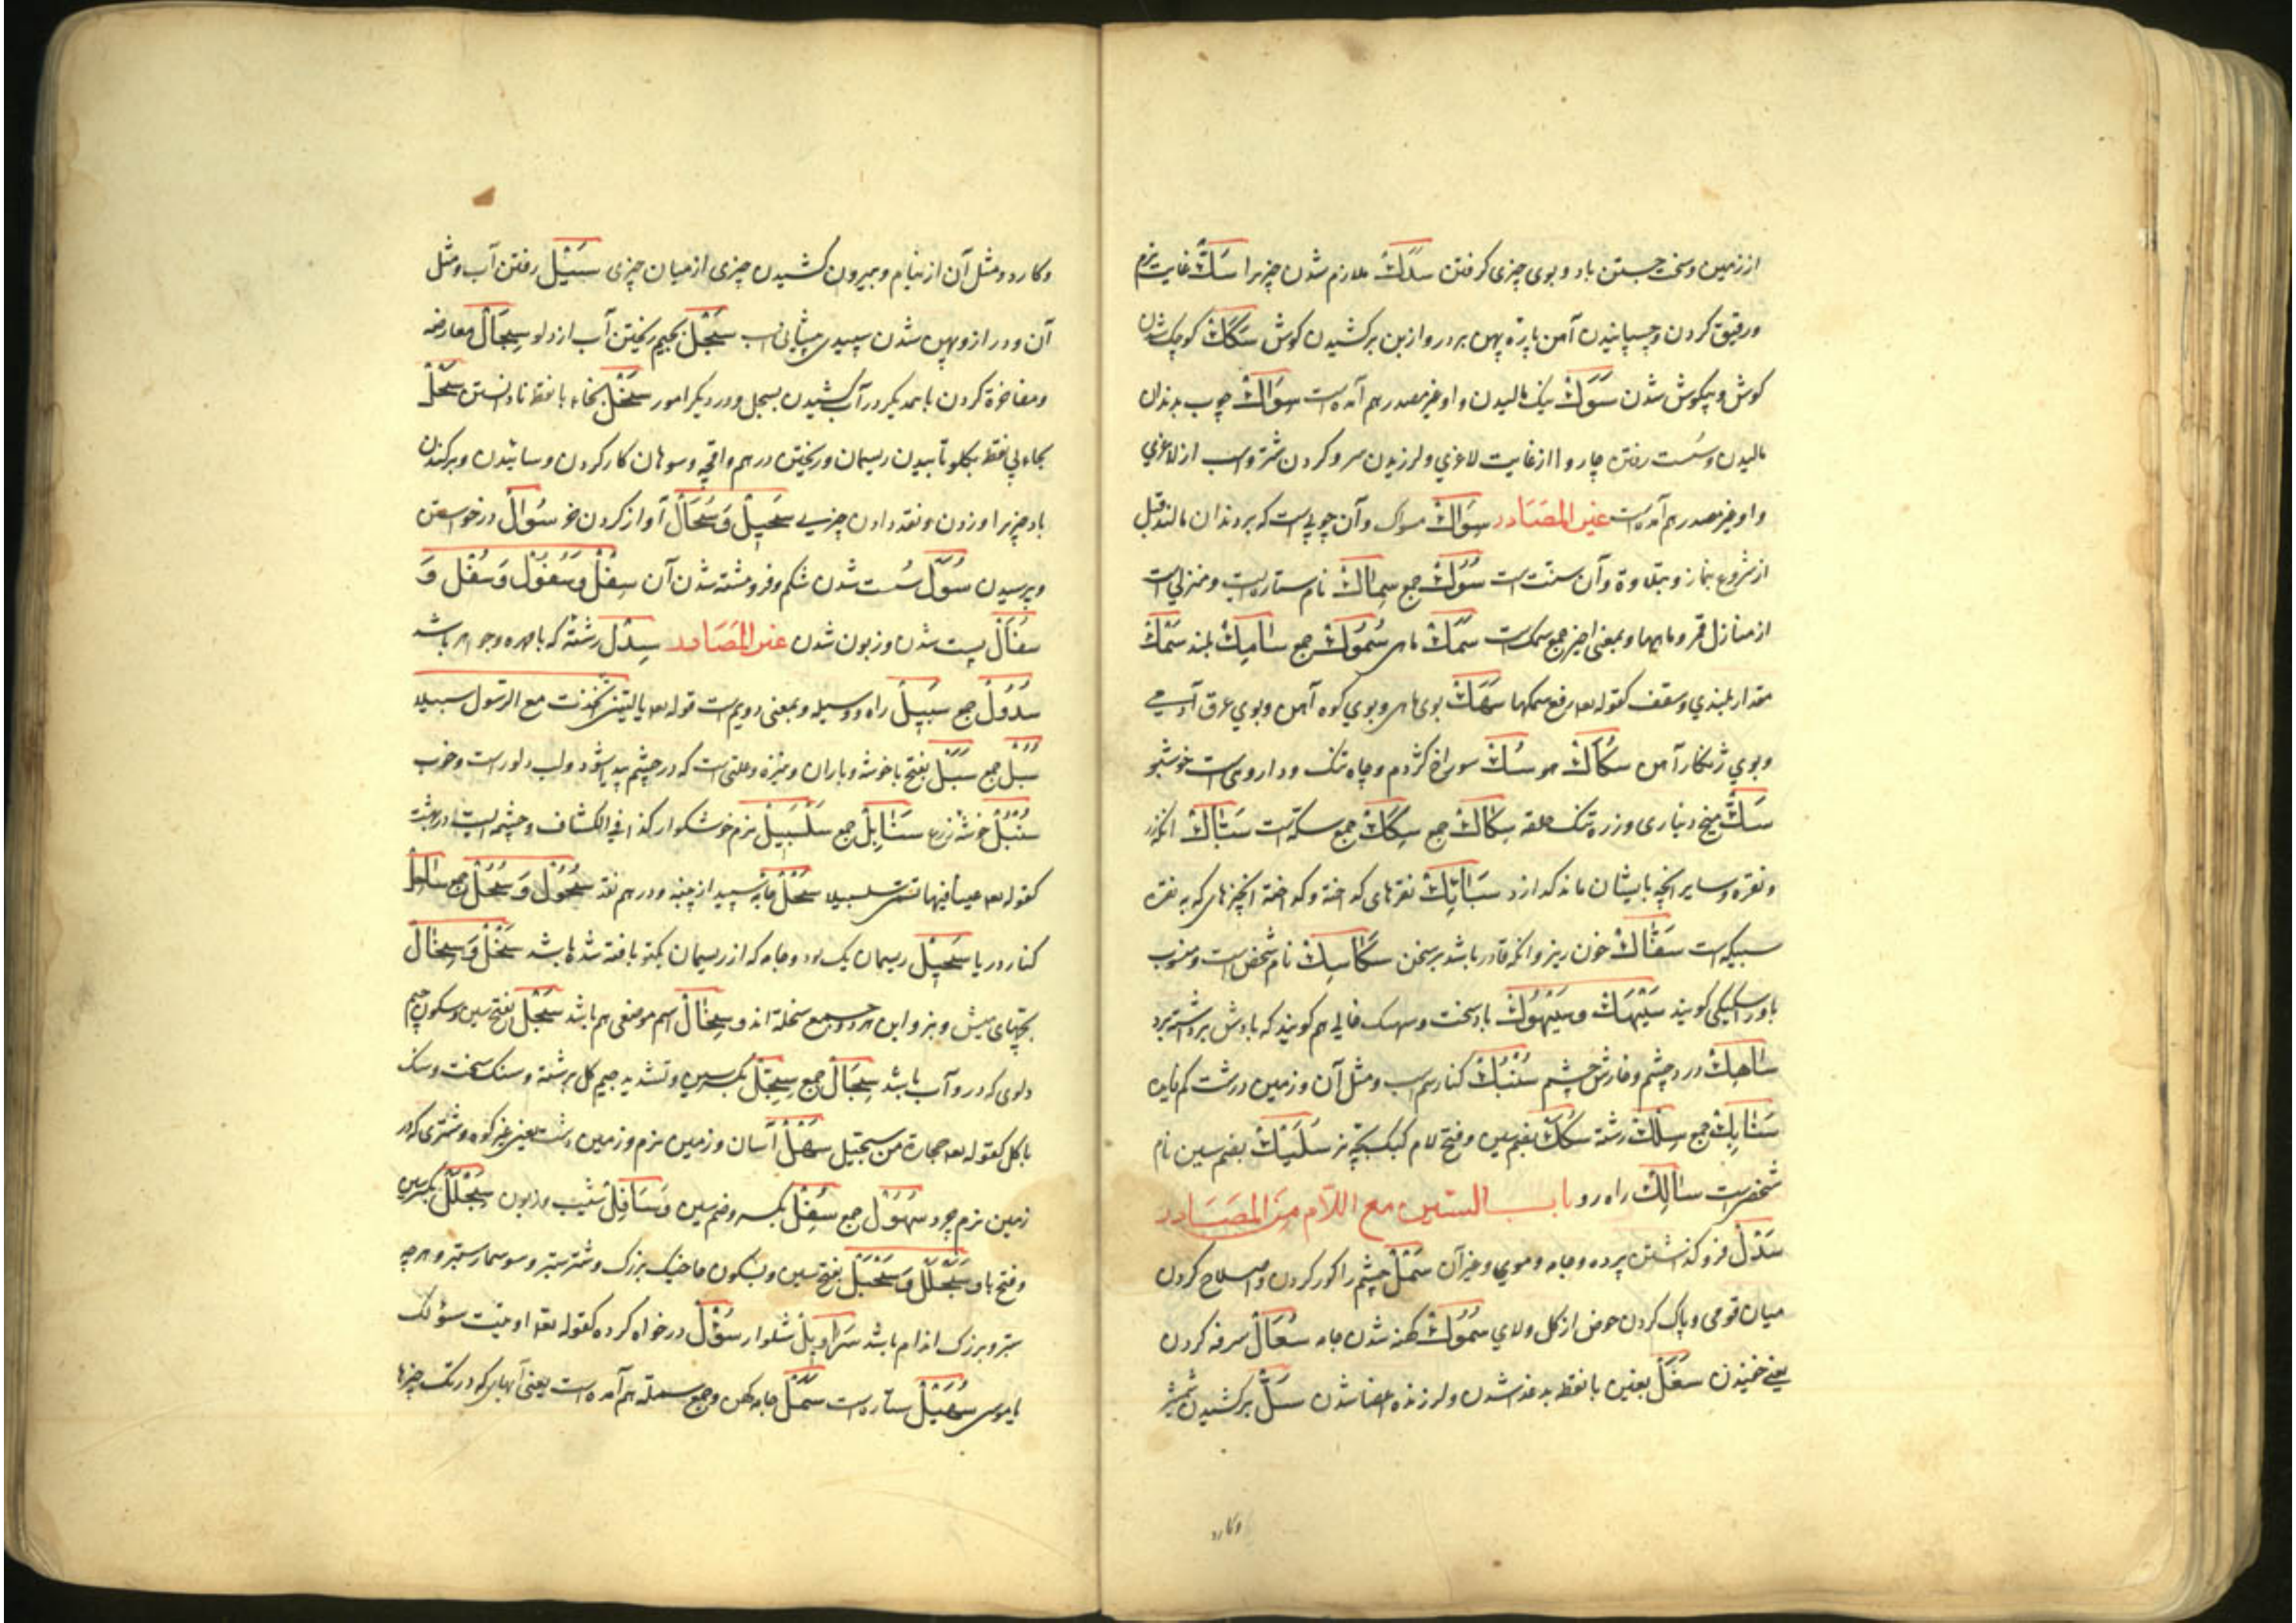 از زمین و سخت جستن باد و بوی چیزی گرفتن سَدَكٌ ملازم شدن چیزیرا سَكٌّ غایت نرم
ورقیق کردن و چسپانیدن آهن پارهٔ پهن بر در و از بن برکشیدن کوش سَكَكٌ کوچک شدن
کوش و بیکوش شدن سَوْكٌ نیک مالیدن و او غیر مصدر هم آمده است سِوَاكٌ چوب بدندان
مالیدن و سُست رفتن چاروا از غایت لاغری و لرزیدن سر و کردن شتر و اسب از لاغری
و او غیر مصدر هم آمده است غیر المصَادر سِوَاكٌ مسواک و آن چوبی است که بر دندان مالند قبل
از شروع بنماز و بتلاوة و آن سنّت است سُوُكٌ جمع سِمَاكٌ نام ستاره ایست و منزلی است
از منازل قمر و ماهیها و بمعنی اخیر جمع سمک است سَمَكٌ ماهی سُمُوكٌ جمع سَامِكٌ بلند سَمْكٌ
مقدار بلندی و سقف کقوله تعه رفع سمکها سَهَكٌ بوی ماهی و بوی کوه آهن و بوی عرق آدمی
و بوی ژنکار آهن سُكَاكٌ هوا سُكٌّ سوراخ کژدم و چاه تنک و داروی است خوشبو
سَكٌّ میخ دیناری و زره تنک حلقه سِكَاكٌ جمع سِكَكٌ جمع سکّه است سَبَّاكٌ انکه زر
و نقره و سایر آنچه بایشان ماند کدازد سَبَائِكٌ نقرهای کداخته و کداخته از چیزهای که به نقره
سبیکه است سَفَّاكٌ خون ریز و انکه قادر باشد بر سخن سَكَاسِكٌ نام شخصی است و منسوب
باو را سکسکی کویند سَیْهَكٌ و سَیْهُوكٌ باد سخت و سهک فالی هم کویند که بادش برداشته برد
سَاهِكٌ درد چشم و خارش چشم سُنْبُكٌ کنار سم اسب و مثل آن و زمین درشت کم فایده
سَنَابِكٌ جمع سِلْكٌ رشته سُلَكٌ بضم سین و فتح لام کبک بچّه نر سُلَیْكٌ بضم سین نام
شخصی است سَالِكٌ راه رو باب السّین مع اللّام مِنَ المصَادر
سَدْلٌ فرو کذاشتن پرده و جامه و موی و غیر آن سَمْلٌ چشم را کور کردن و اصلاح کردن
میان قومی و پاک کردن حوض از کل و لای سُمُولٌ کهنه شدن جامه سُعَالٌ سرفه کردن
یعنی خفیدن سَغَلٌ بغین با نقطه بد غذا شدن و لرزنده اعضا شدن سَلٌّ برکشیدن شمشیر
وکارد
وکارد و مثل آن از نیام و بیرون کشیدن چیزی از میان چیزی سَیْلٌ رفتن آب و مثل
آن و دراز و پهن شدن سپیدی پیشانی اسب سَجْلٌ بجیم ریختن آب از دلو سِجَالٌ معارضه
و مفاخرة کردن با همدیکر در آب کشیدن بسجل و در دیکر امور سَخْلٌ بخاء با نقطه نا دانستن سَحْلٌ
بحاء بی نقطه بکلو تابیدن ریسمان و ریختن درهم واقچه و سوهان کار کردن و سائیدن و برکندن
باد چیزیرا و زدن و نقد دادن چیزی سَحِیلٌ وَ سُحَالٌ آواز کردن خر سُؤَالٌ درخواستن
و پرسیدن سُوَلٌ سُست شدن شکم و فروهشته شدن آن سِفْلٌ وَ سُفُولٌ وَ سُفْلٌ وَ
سَفَالٌ پست شدن و زبون شدن غیر المَصَادر سِدْلٌ رشته که با مهره و جواهر باشد
سُدُولٌ جمع سَبِیلٌ راه و وسیله و بمعنی دویم است قوله تعه یا لیتنی اتخذت مع الرسول سبیلا
سُبُلٌ جمع سَبَلٌ بفتح با خوشه و باران و نیزه و علتی است که در چشم پیدا شود و لب دلو راست و خوب
سُنْبُلٌ خوشهٔ زرع سَنَابِلٌ جمع سَلْسَبِیلٌ نرم خوشکوار کذا فی الکشاف و چشمه ایست در بهشت
کقوله تعه عینا فیها تسمّی سلسبیلا سَحْلٌ جامهٔ سپید از پنبه و درهم نقد سُحُولٌ وَ سُحُلٌ جمع سَاحِلٌ
کنار دریا سَحِیلٌ ریسمان یک لا و جامه که از ریسمان یکتو بافته شده باشد سَخْلٌ وَ سِخَالٌ
بچّهای میش و بز و این هر دو جمع سخلة اند و سِخَالٌ اسم موضعی هم باشد سَجْلٌ بفتح سین و سکون جیم
دلوی که درو آب باشد سِجَالٌ جمع سِجِّلٌ بکسر سین و تشدید جیم کل برشته و سنک سخت و سنک
با کل کقوله تعه حجارة من سجّیل سَهْلٌ آسان و زمین نرم و زمین دشت یعنی غیر کوه و شتری که در
زمین نرم چرد سُهُولٌ جمع سُفْلٌ بکسر و ضم سین وَ سَافِلٌ نشیب و زبون سِبَحْلَلٌ بکسر سین
و فتح با و سَبَحْلَلٌ وَ سَحْبَلٌ بفتح سین و بسکون حا خیک بزرک و شتر ستبر و سوسمار ستبر و هر چه
ستبر و بزرک اندام باشد سَرَاوِیلٌ شلوار سُؤْلٌ درخواه کرده کقوله تعه اوتیت سؤلک
یا موسی سُهَیْلٌ ستاره است سَمَلٌ جامه کهن و جمع سمله هم آمده است یعنی آبهای که در تک چیزها